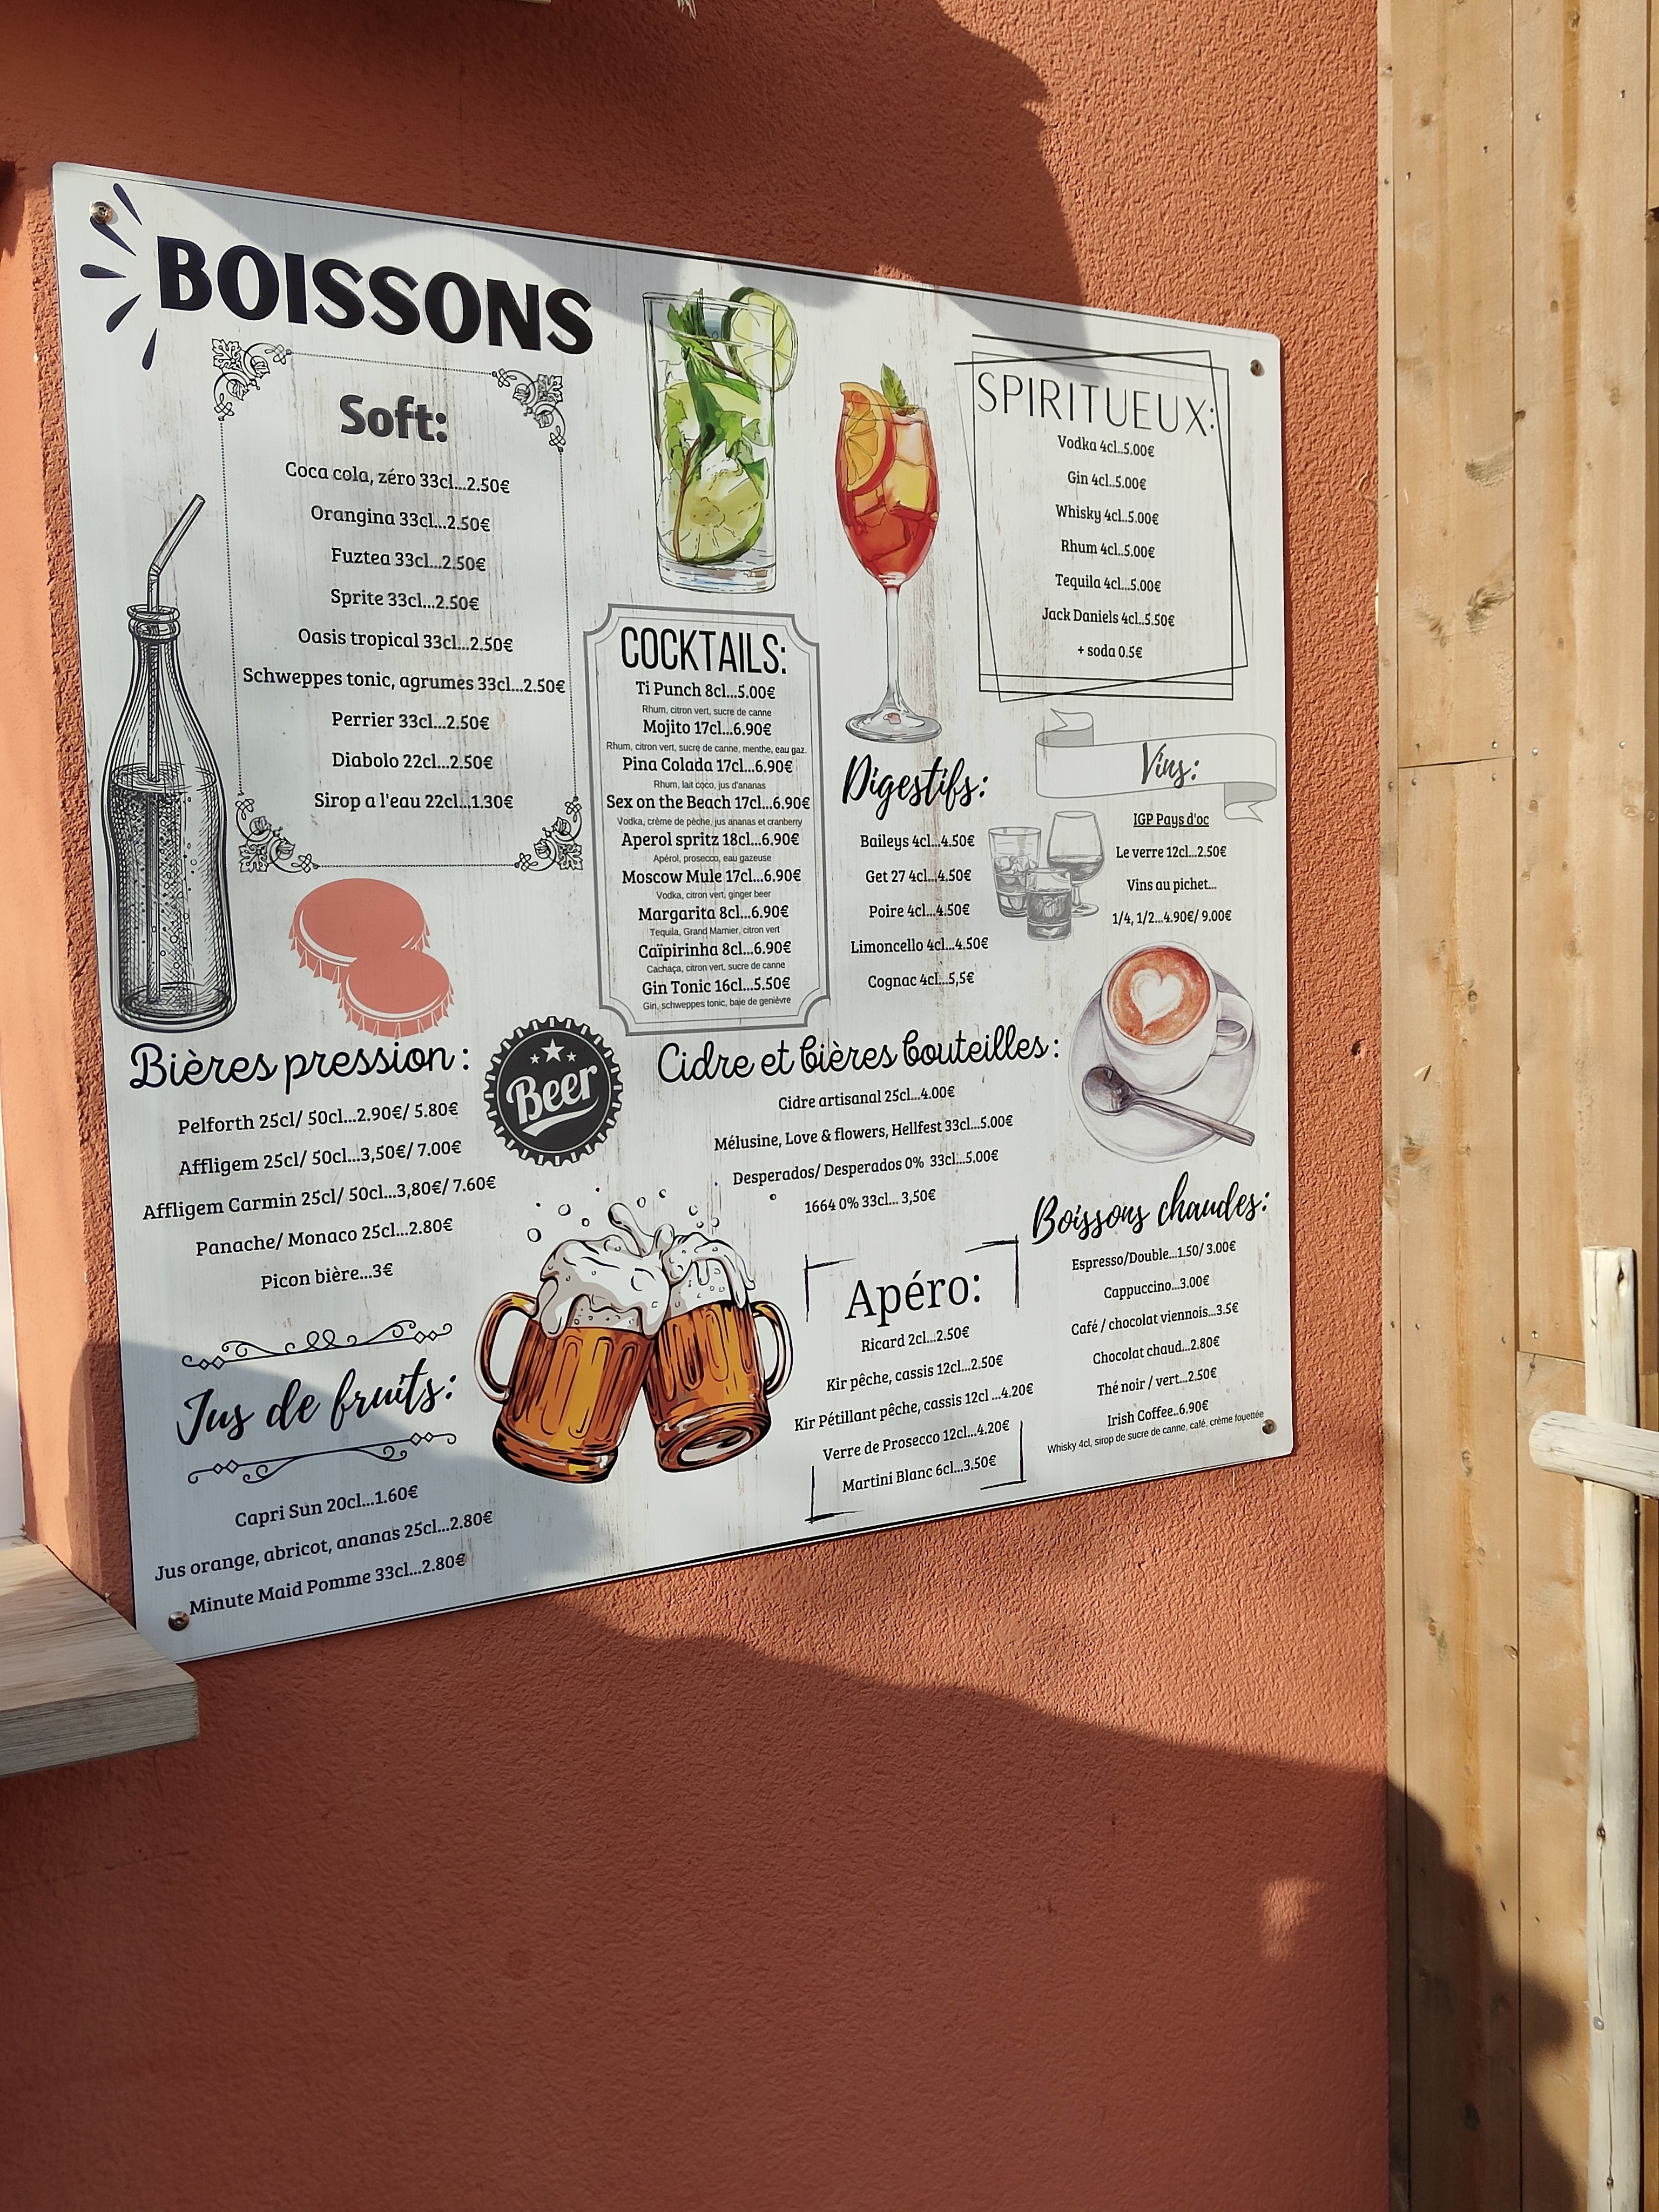 BOISSONS
Soft:
Coca cola, zéro 33cl...2.50€
Orangina 33cl...2.50€
Fuztea 33cl...2.50€
Sprite 33cl...2.50€
Oasis tropical 33cl...2.50€
Schweppes tonic, agrumes 33cl...2.50€
Perrier 33cl...2.50€
Diabolo 22cl...2.50€
Sirop a l'eau 22cl...1.30€
COCKTAILS:
Ti Punch 8cl...5.00€
Rhum, citron vert, sucre de canne
Mojito 17cl...6.90€
Rhum, citron vert, sucre de canne, menthe, eau gaz.
Pina Colada 17cl...6.90€
Rhum, lait coco, jus d'ananas
Sex on the Beach 17cl...6.90€
Vodka, crème de pèche, jus ananas et cranberry
Aperol spritz 18cl...6.90€
Apérol, prosecco, eau gazeuse
Moscow Mule 17cl...6.90€
Vodka, citron vert, ginger beer
Margarita 8cl...6.90€
Tequila, Grand Marnier, citron vert
Caïpirinha 8cl...6.90€
Cachaça, citron vert, sucre de canne
Gin Tonic 16cl...5.50€
Gin, schweppes tonic, baie de genièvre
SPIRITUEUX:
Vodka 4cl..5.00€
Gin 4cl..5.00€
Whisky 4cl..5.00€
Rhum 4cl..5.00€
Tequila 4cl...5.00€
Jack Daniels 4cl..5.50€
+ soda 0.5€
Digestifs:
Baileys 4cl...4.50€
Get 27 4cl...4.50€
Poire 4cl...4.50€
Limoncello 4cl...4.50€
Cognac 4cl...5,5€
Vins:
IGP Pays d'oc
Le verre 12cl...2.50€
Vins au pichet...
1/4, 1/2...4.90€/ 9.00€
Bières pression:
Pelforth 25cl/ 50cl...2.90€/ 5.80€
Affligem 25cl/ 50cl...3,50€/ 7.00€
Affligem Carmin 25cl/ 50cl...3,80€/ 7.60€
Panache/ Monaco 25cl...2.80€
Picon bière...3€
Beer
Cidre et bières bouteilles:
Cidre artisanal 25cl...4.00€
Mélusine, Love & flowers, Hellfest 33cl...5.00€
Desperados/ Desperados 0% 33cl...5.00€
1664 0% 33cl... 3,50€
Jus de fruits:
Capri Sun 20cl...1.60€
Jus orange, abricot, ananas 25cl...2.80€
Minute Maid Pomme 33cl...2.80€
Apéro:
Ricard 2cl...2.50€
Kir pêche, cassis 12cl...2.50€
Kir Pétillant pêche, cassis 12cl ...4.20€
Verre de Prosecco 12cl...4.20€
Martini Blanc 6cl...3.50€
Boissons chaudes:
Espresso/Double...1.50/ 3.00€
Cappuccino...3.00€
Café / chocolat viennois...3.5€
Chocolat chaud...2.80€
Thé noir / vert...2.50€
Irish Coffee..6.90€
Whisky 4cl, sirop de sucre de canne, café, crème fouettée